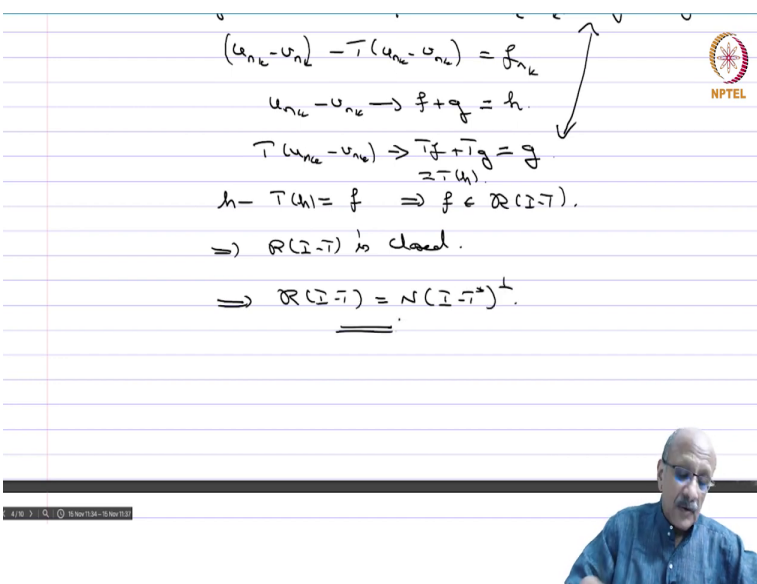 (u_{n_k} - v_{n_k}) - T(u_{n_k} - v_{n_k}) = f_{n_k}
NPTEL
u_{n_k} - v_{n_k} → f + g = h.
T(u_{n_k} - v_{n_k}) → Tf + Tg = g
= T(h).
h - T(h) = f ⇒ f ∈ R(I-T).
⇒ R(I-T) is closed.
⇒ R(I-T) = N(I-T*)^⊥.
4/10 15 Nov 11:34 – 15 Nov 11:37